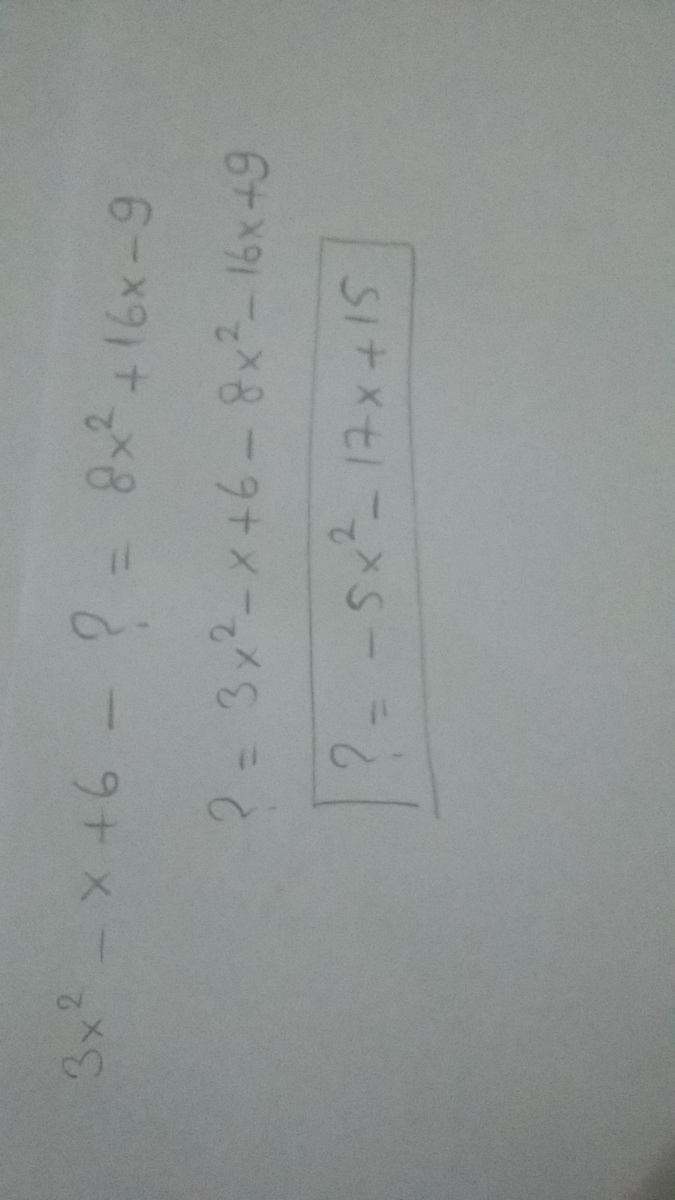 3x² - x + 6 - ? = 8x² + 16x - 9
? = 3x² - x + 6 - 8x² - 16x + 9
? = - 5x² - 17x + 15